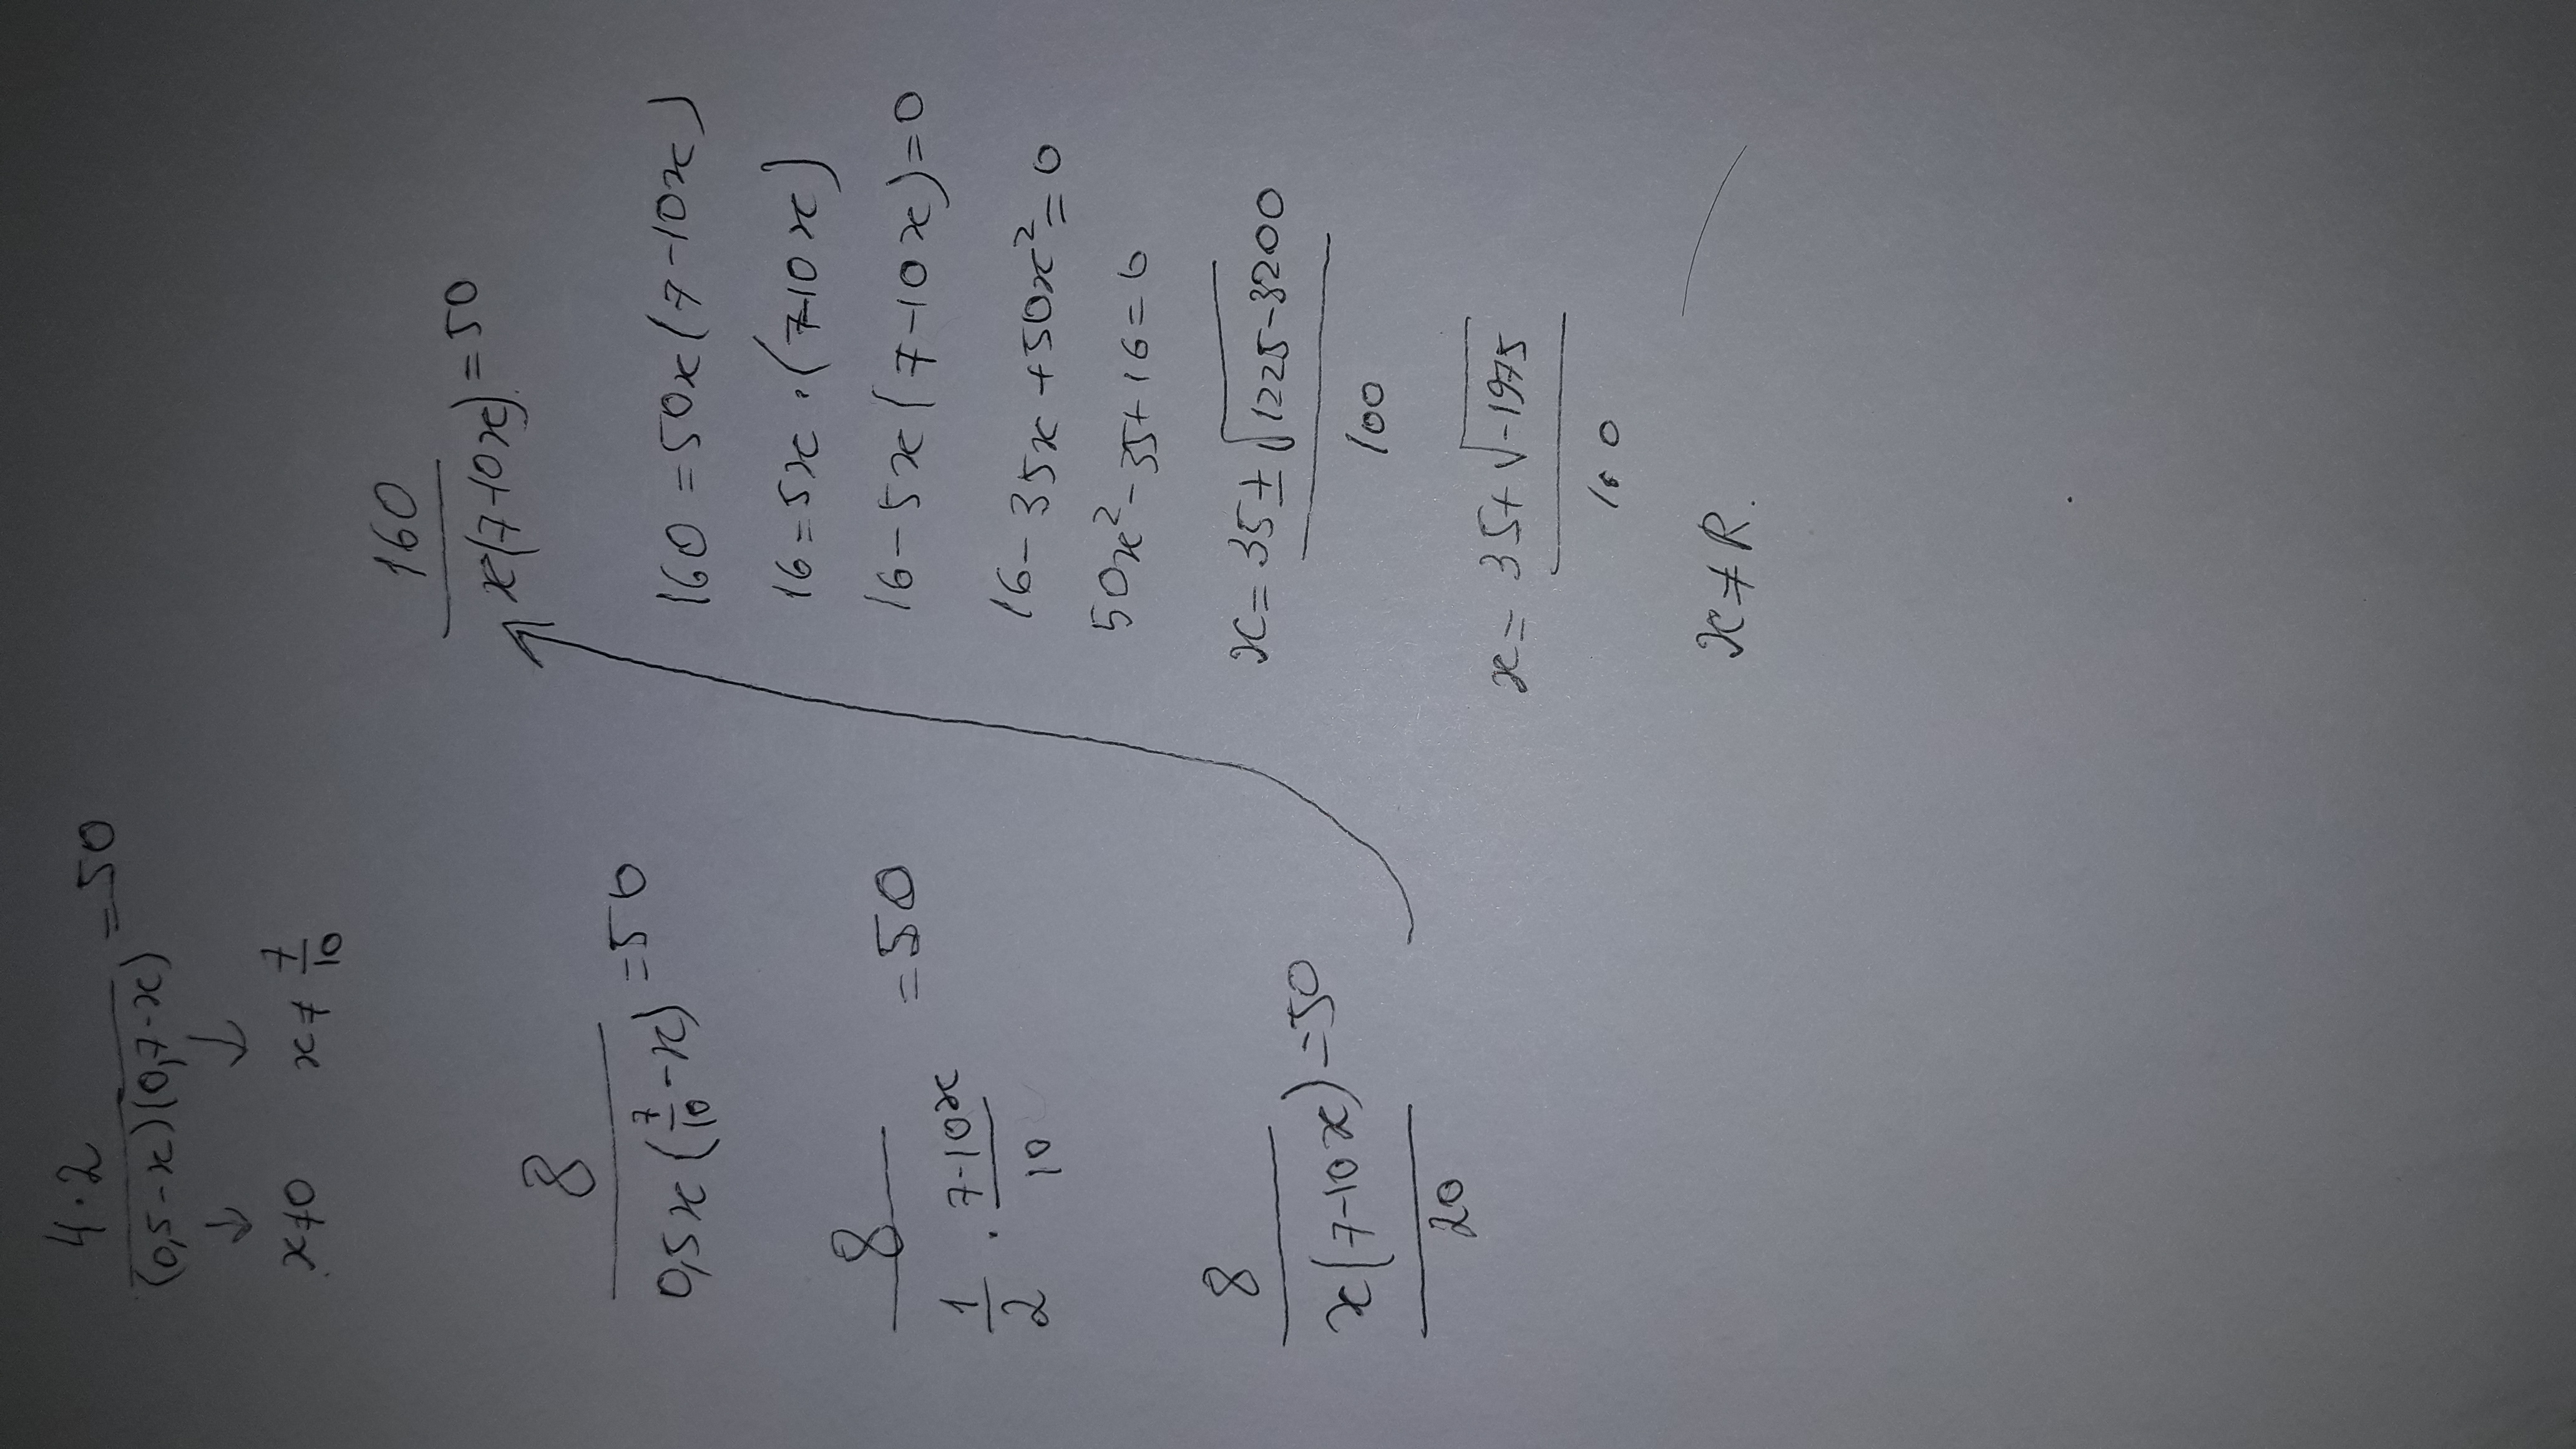 4·2
(0,5-x)(0,7-x) =50
↓ ↓
x≠0 x≠ 7/10
8
0,5x(7/10-x) =50
8
1/2 · 7-10x/10 =50
8
x(7-10x) =50
20
160
x(7-10x) =50
160=50x(7-10x)
16=5x·(7-10x)
16-5x(7-10x)=0
16-35x+50x²=0
50x²-35+16=0
x=35±√1225-3200
100
x=35+√-1975
100
x≠R.